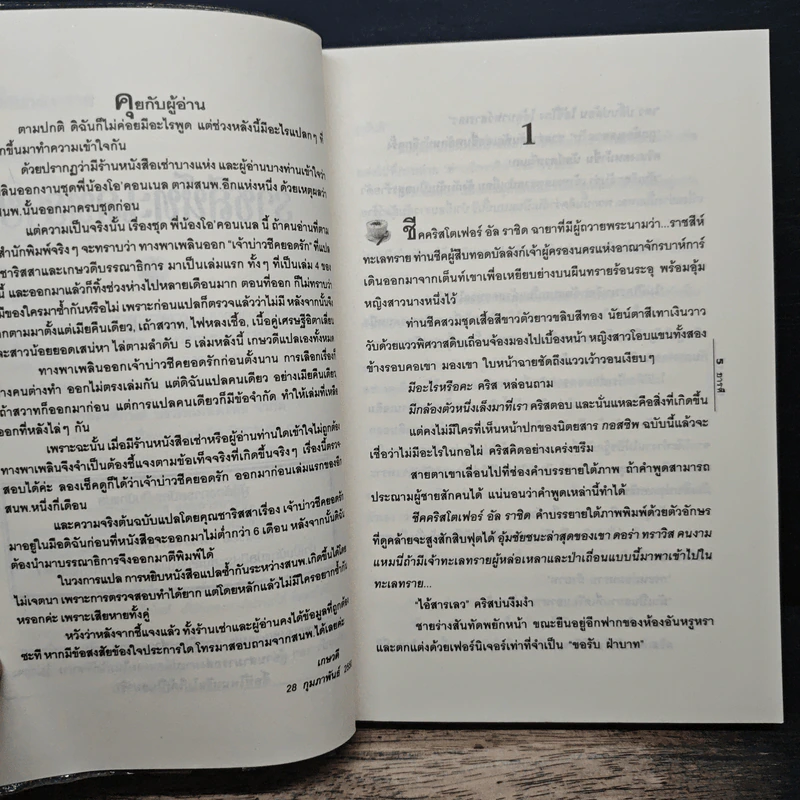 คุยกับผู้อ่าน
ตามปกติ ดิฉันก็ไม่ค่อยมีอะไรพูด แต่ช่วงหลังนี้มีอะไรแปลกๆ
ขึ้นมาทำความเข้าใจกัน
ด้วยปรากฏว่ามีร้านหนังสือเช่าบางแห่ง และผู้อ่านบางท่านเข้าใจว่า
เพลินออกงานชุดพี่น้องโอ'คอนเนล ตามสนพ.อีกแห่งหนึ่ง ด้วยเหตุผลว่า
สนพ.นั้นออกมาครบชุดก่อน
แต่ความเป็นจริงนั้น เรื่องชุด พี่น้องโอ'คอนเนล นี้ ถ้าคนอ่านที่ตาม
สำนักพิมพ์จริงๆ จะทราบว่า ทางพาเพลินออก "เจ้าบ่าวชีคยอดรัก" ที่แปล
ชาริสสาและเกษวดีบรรณาธิการ มาเป็นเล่มแรก ทั้งๆ ที่เป็นเล่ม 4 ของ
นี้ และออกมาแล้วก็ทิ้งช่วงห่างไปหลายเดือนมาก ตอนที่ออก ก็ไม่ทราบว่า
มีของใครมาซ้ำกันหรือไม่ เพราะก่อนแปลก็ตรวจแล้วว่าไม่มี หลังจากนั้นจึง
กตามมาตั้งแต่เมียคืนเดียว, เถ้าสวาท, ไฟหลงเชื้อ, เนื้อคู่เศรษฐีอิตาเลียน
และสาวน้อยยอดเสน่หา ไล่ตามลำดับ 5 เล่มหลังนี้ เกษวดีแปลเองทั้งหมด
ทางพาเพลินออกเจ้าบ่าวชีคยอดรักก่อนตั้งนาน การเลือกเรื่องที่
างคนต่างทำ ออกไม่ตรงเล่มกัน แต่ดิฉันแปลคนเดียว อย่างเมียคืนเดียว
เถ้าสวาทก็ออกมาก่อน แต่การแปลคนเดียวก็มีข้อจำกัด ทำให้เล่มที่เหลือ
ออกทีหลังไล่ๆ กัน
เพราะฉะนั้น เมื่อมีร้านหนังสือเช่าหรือผู้อ่านท่านใดเข้าใจไม่ถูกต้อง
ทางพาเพลินจึงจำเป็นต้องชี้แจงตามข้อเท็จจริงที่เกิดขึ้นจริงๆ เรื่องนี้ตรวจ
สอบได้ค่ะ ลองเช็คดูก็ได้ว่าเจ้าบ่าวชีคยอดรัก ออกมาก่อนเล่มแรกของอีก
สนพ.หนึ่งกี่เดือน
และความจริงต้นฉบับแปลโดยคุณชาริสสาเรื่อง เจ้าบ่าวชีคยอดรัก
มาอยู่ในมือดิฉันก่อนที่หนังสือจะออกมาไม่ต่ำกว่า 6 เดือน หลังจากนั้นดิฉัน
ต้องนำมาบรรณาธิการจึงออกมาตีพิมพ์ได้
ในวงการแปล การหยิบหนังสือแปลซ้ำกันระหว่างสนพ.เกิดขึ้นได้โดย
ไม่เจตนา เพราะการตรวจสอบทำได้ยาก แต่โดยหลักแล้วไม่มีใครอยากซ้ำกัน
หรอกค่ะ เพราะเสียหายทั้งคู่
หวังว่าหลังจากชี้แจงแล้ว ทั้งร้านเช่าและผู้อ่านคงได้ข้อมูลที่ถูกต้อง
ซะที หากมีข้อสงสัยข้องใจประการใด โทรมาสอบถามจากสนพ.ได้เลยค่ะ
เกษวดี
28 กุมภาพันธ์
1
ชีคคริสโตเฟอร์ อัล ราชิด ฉายาที่มีผู้ถวายพระนามว่า...ราชสีห์
ทะเลทราย ท่านชีคผู้สืบทอดบัลลังก์เจ้าผู้ครองนครแห่งอาณาจักรบาห์การ์
เดินออกมาจากเต็นท์เขาเพื่อเหยียบย่างบนผืนทรายร้อนระอุ พร้อมอุ้ม
หญิงสาวนางหนึ่งไว้
ท่านชีคสวมชุดเสื้อสีขาวตัวยาวขลิบสีทอง นัยน์ตาสีเทาเงินวาว
วับด้วยแววพิศวาสดิบเถื่อนจ้องมองไปเบื้องหน้า หญิงสาวโอบแขนทั้งสอง
ข้างรอบคอเขา มองเขา ใบหน้าฉายชัดถึงแววเว้าวอนเงียบๆ
มีอะไรหรือคะ คริส หล่อนถาม
มีกล้องตัวหนึ่งเล็งมาที่เรา คริสตอบ และนั่นแหละคือสิ่งที่เกิดขึ้น
แต่คงไม่มีใครที่เห็นหน้าปกของนิตยสาร กอสซิพ ฉบับนี้แล้วจะ
เชื่อว่าไม่มีอะไรในกอไผ่ คริสคิดอย่างเคร่งขรึม
สายตาเขาเลื่อนไปที่ช่องคำบรรยายใต้ภาพ ถ้าคำพูดสามารถ
ประณามผู้ชายสักคนได้ แน่นอนว่าคำพูดเหล่านี้ทำได้
ชีคคริสโตเฟอร์ อัล ราชิด คำบรรยายใต้ภาพพิมพ์ด้วยตัวอักษร
ที่ดูคล้ายจะสูงสักสิบฟุตได้ อุ้มชัยชนะล่าสุดของเขา ดอร่า ทราวิส คนงาม
แหมนี่ถ้ามีเจ้าทะเลทรายผู้หล่อเหลาและป่าเถื่อนแบบนี้มาพาเข้าไปใน
ทะเลทราย...
"ไอ้สารเลว" คริสบ่นงึมงำ
ชายร่างสันทัดพยักหน้า ขณะยืนอยู่อีกฟากของห้องอันหรูหรา
และตกแต่งด้วยเฟอร์นิเจอร์เท่าที่จำเป็น "ขอรับ ฝ่าบาท"
5 ชารสี